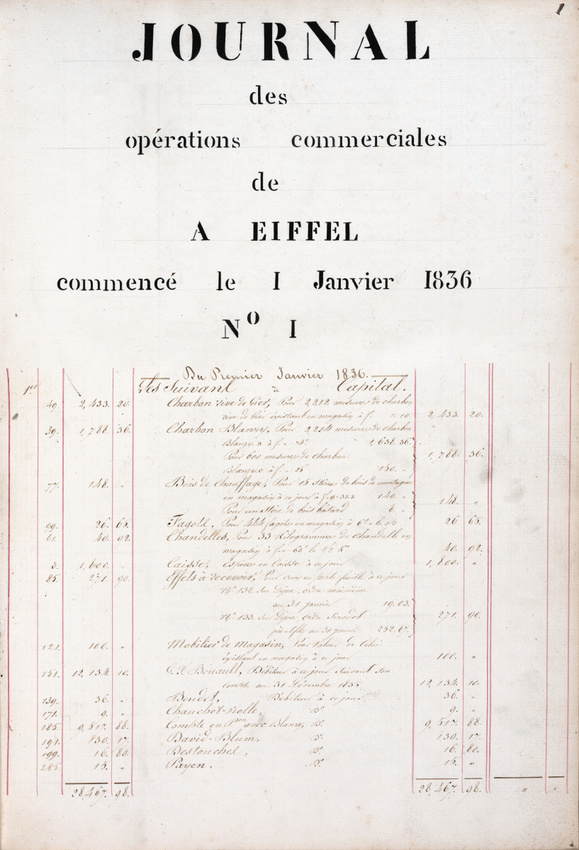 1
JOURNAL
des
opérations commerciales
de
A EIFFEL
commencé le 1 Janvier 1836
Nº 1
Du Premier Janvier 1836.
1er Les Suivant à Capital.
49. 2,433. 20. Charbon rive de Gier, Pour 2,412 mesures de charbon
rive de Gier existant en magasin à f. 1.10. 2,433. 20.
39. 1,788. 36. Charbon Blanzy, Pour 2214 mesures de charbon
1,638.36.
Pour 600 mesures de charbon
150. 1,788. 36.
77. 148. " Bois de Chauffage, Pour 15 de bois de
en magasin à ce jour à f. 140. "
8. " 148. "
69. 26. 65. Fagots, Pour 444 fagots en magasin à 26. 65.
61. 40. 92. Chandelles, Pour 33 Kilogrammes de chandelle en
magasin à 40. 92.
3. 1,600. " Caisse, espèces en Caisse à ce jour 1,600. "
85. 271. 90. Effets à recevoir, Pour ceux en porte feuille à ce jour
Nº 132. Sur Dijon, ordre
au 31 janvier 19.03.
Nº 133. Sur Dijon, ordre
252.87. 271. 90.
121. 100. " Mobilier de magasin, Pour valeur de celui
existant en magasin à ce jour. 100. "
151. 12,134. 10. Débiteur à ce jour suivant son
compte au 31 Décembre 1835 12,134. 10.
139. 36. " Boudot, Débiteur à ce jour 36. "
171. 9. " 9. "
185. 9,517. 88. Compte en avec Blanzy, dº 9,517. 88.
194. 130. 17. David-Blum, dº 130. 17.
199. 16. 80. Destouches, dº 16. 80.
285. 15. " Payen. dº 15. "
28,467. 98. 28,467. 98. " "